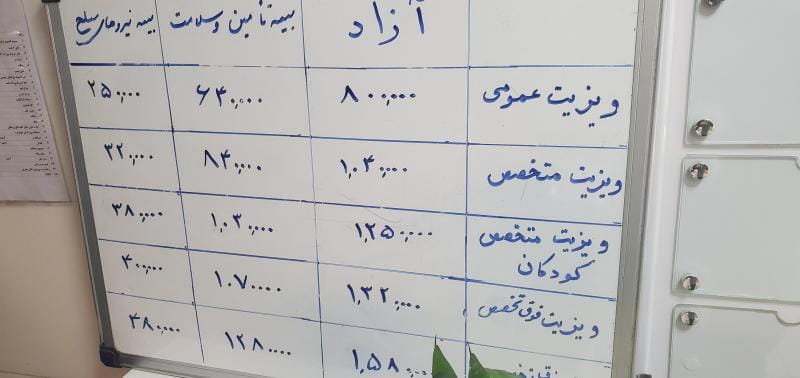 آزاد بیمه تأمین و سلامت بیمه نیروهای مسلح
ویزیت عمومی ۸۰۰,۰۰۰ ۶۴۰,۰۰۰ ۲۵۰,۰۰۰
ویزیت متخصص ۱,۰۴۰,۰۰۰ ۸۴۰,۰۰۰ ۳۲۰,۰۰۰
ویزیت متخصص ۱,۲۵۰,۰۰۰ ۱,۰۳۰,۰۰۰ ۳۸۰,۰۰۰
کودکان
ویزیت فوق تخصص ۱,۳۲۰,۰۰۰ ۱,۰۷۰۰۰۰ ۴۰۰,۰۰۰
۱,۵۸۰,۰۰۰ ۱۲۸۰۰۰۰ ۴۸۰,۰۰۰